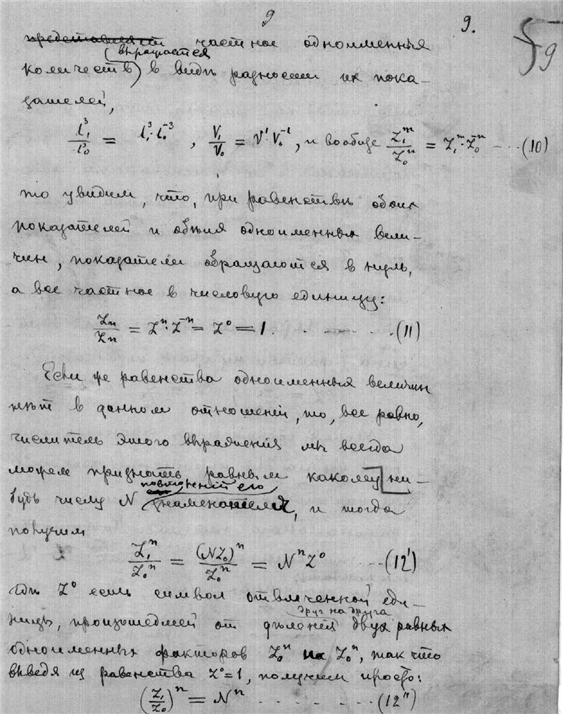 9 9. 59
представляетъ частное одноименныхъ
(выражается
количествъ) въ видѣ разности ихъ пока-
зателей,
l₁³/l₀³ = l₁³·l₀⁻³, V₁/V₀ = V¹V₀⁻¹, и вообще Z₁ⁿ/Z₀ⁿ = Z₁ⁿ·Z₀⁻ⁿ --- (10)
то увидим, что, при равенствѣ обоих
показателей и обѣих одноименных вели-
чин, показатели обращаются в нуль,
а все частное в числовую единицу:
Zn/Zn = Zⁿ·Z⁻ⁿ = Z⁰ = 1 ------- (11)
Если же равенства одноименных величин
нѣт в данном отношеніи, то, все равно,
числитель этого выраженія мы всегда
можем признать равным какому ни-
будь числу N
его
знаменателей, и тогда
получим
Z₁ⁿ/Z₀ⁿ = (NZ₀)ⁿ/Z₀ⁿ = NⁿZ⁰ --- (12')
Гдѣ Z⁰ есть символ отвлеченной еди-
друг на друга
ницы, происшедшей от дѣленія двух равных
одноименных факторов Z₀ⁿ на Z₀ⁿ, так что
выведя из равенства Z⁰=1, получим просто:
(Z₁/Z₀)ⁿ = Nⁿ ------- (12")